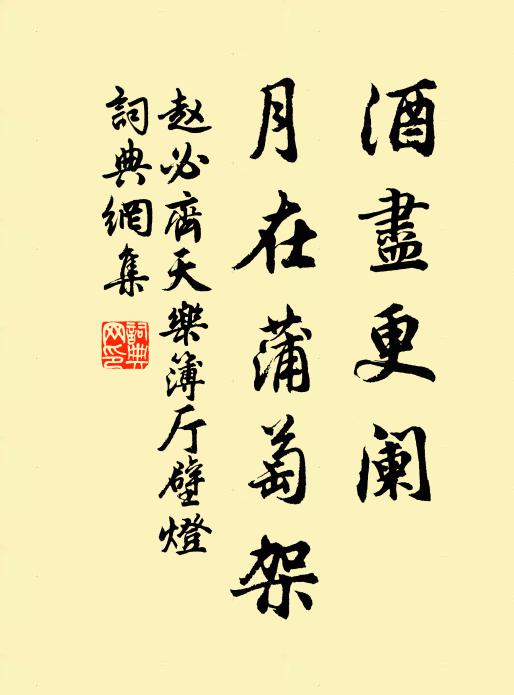 酒盡更阑
月在蒲萄架
赵必齊天樂簿厅壁燈
詞典網集
詞典网印